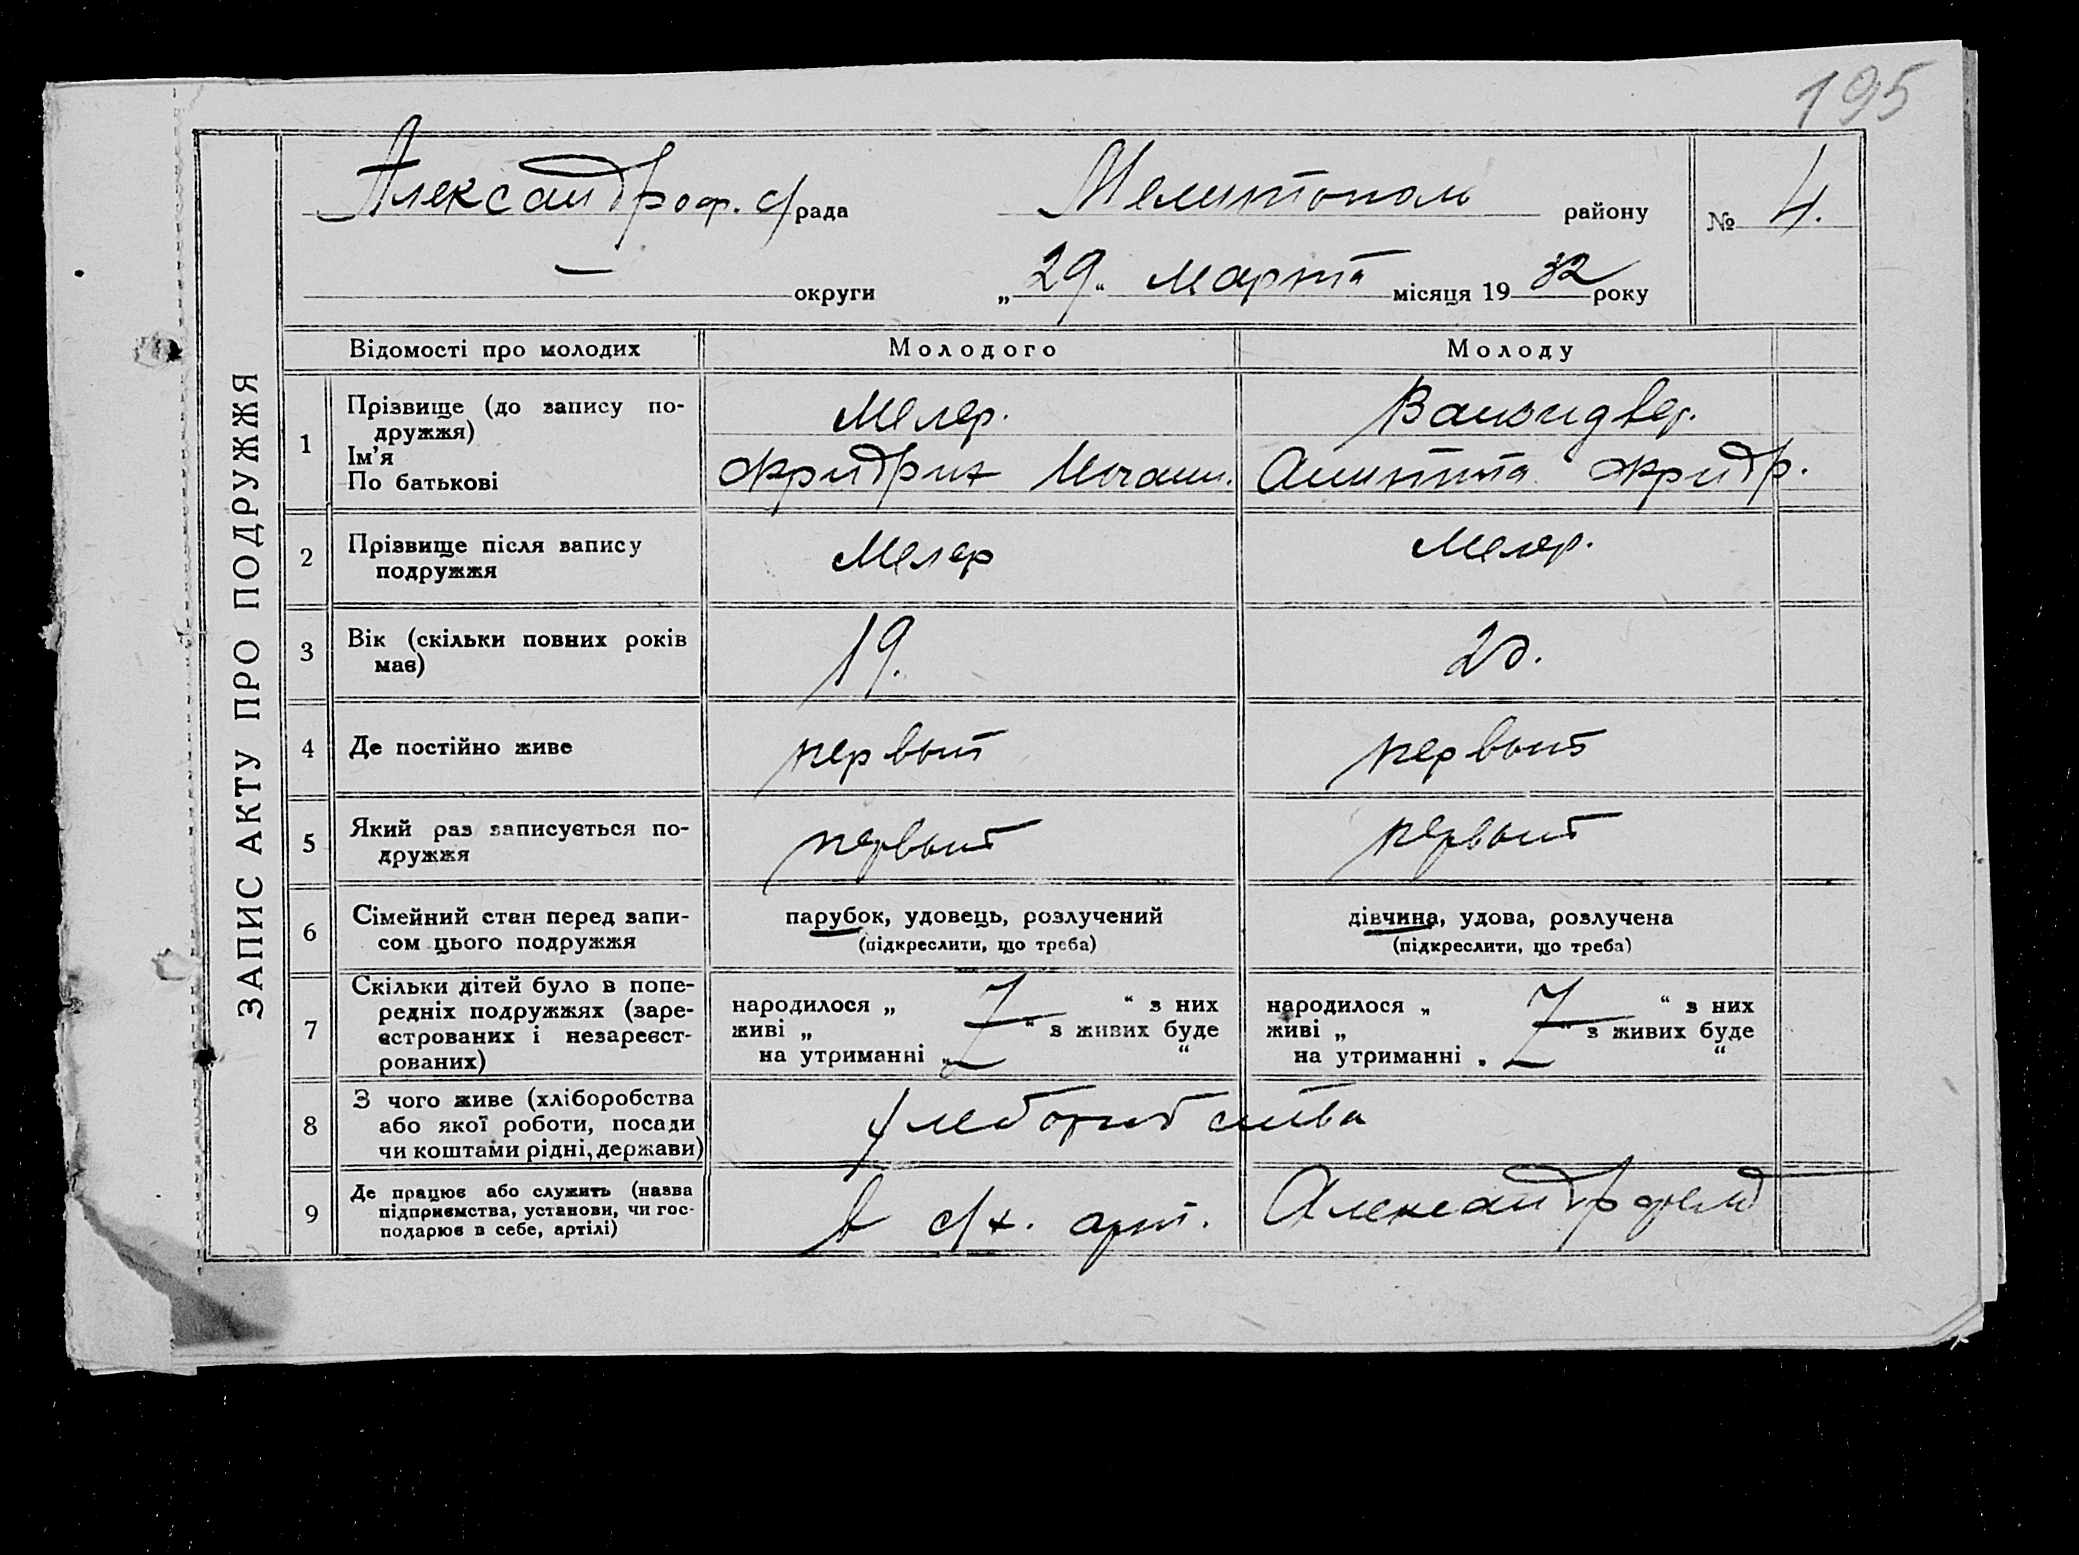 195
ЗАПИС АКТУ ПРО ПОДРУЖЖЯ
Александроф. с/рада
Мелитополь району
№ 4.
— округи
„29“ марта місяця 1932 року
Відомості про молодих
Молодого
Молоду
1
Прізвище (до запису по-
дружжя)
Ім’я
По батькові
Мелер.
Фридрих Иоганн.
Фридр.
2
Прізвище після запису
подружжя
Мелер
Мелер.
3
Вік (скільки повних років
має)
19.
20.
4
Де постійно живе
первый
первый
5
Який раз записується по-
дружжя
первый
первый
6
Сімейний стан перед запи-
сом цього подружжя
парубок, удовець, розлучений
(підкреслити, що треба)
дівчина, удова, розлучена
(підкреслити, що треба)
7
Скільки дітей було в попе-
редніх подружжях (заре-
єстрованих і незареєст-
рованих)
народилося „ “ з них
живі „ “ з живих буде
на утриманні „ “
народилося „ “ з них
живі „ “ з живих буде
на утриманні „ “
8
З чого живе (хліборобства
або якої роботи, посади
чи коштами рідні, держави)
9
Де працює або служить (назва
підприємства, установи, чи гос-
подарює в себе, артілі)
в с/х. арт. Александрфельд